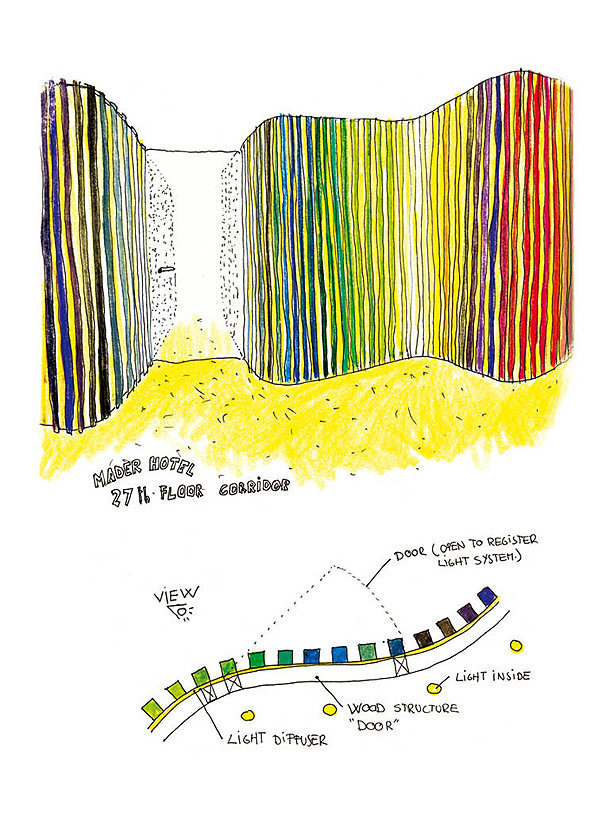 MADER HOTEL
27th. FLOOR CORRIDOR
VIEW
DOOR (OPEN TO REGISTER
LIGHT SYSTEM.)
LIGHT INSIDE
WOOD STRUCTURE
"DOOR"
LIGHT DIFFUSER